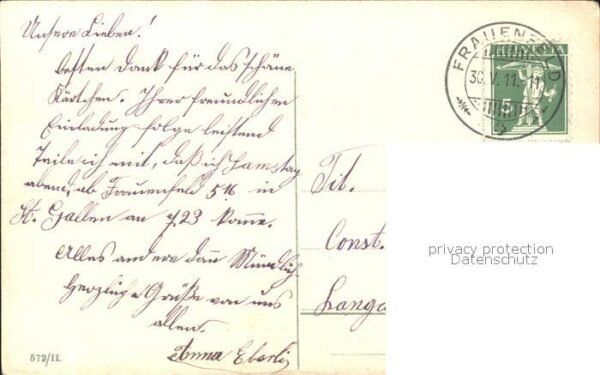 Unsere Lieben!
besten Dank für das schöne
Kärtchen. Ihrer freundlichen
Einladung folge leistend
Teile ich mit, daß ich Samstag
abend, ab Frauenfeld 5 16 in
St. Gallen an 7.23 komme.
Alles andere dann Mündlich
Herzliche Grüße von uns
allen.
Anna Eberli
572/II.
FRAUENFELD
30.V.11.-11
HELVETIA
5
Tit.
Const.
Langg
privacy protection
Datenschutz